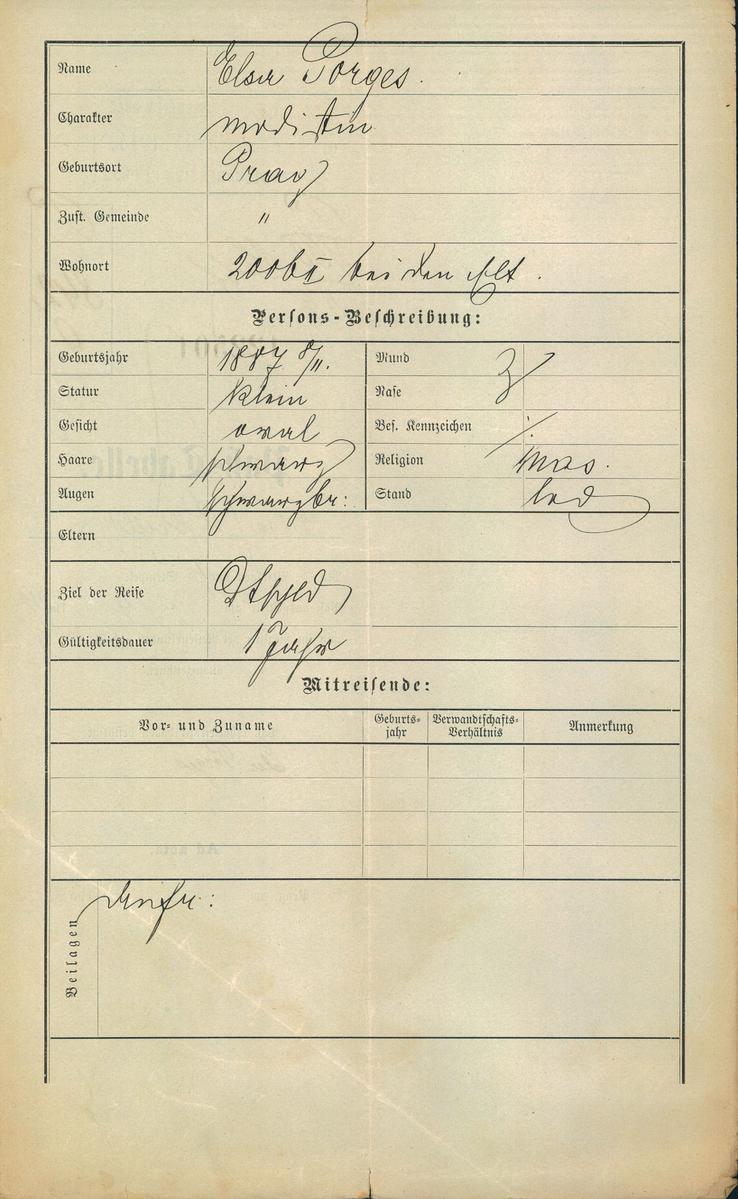 Name Elsa Porges.
Charakter modistin
Geburtsort Prag
Zust. Gemeinde "
Wohnort 200b II bei den
Persons-Beschreibung:
Geburtsjahr 1887 8/11. Mund
Statur klein Nase
Gesicht oval Bes. Kennzeichen /.
Haare schwarz Religion mos.
Augen schwarzbr: Stand led
Eltern
Ziel der Reise Dtschld
Gültigkeitsdauer 1 Jahr
Mitreisende:
Vor- und Zuname Geburts- Verwandtschafts- Anmerkung
jahr Verhältnis
Beilagen